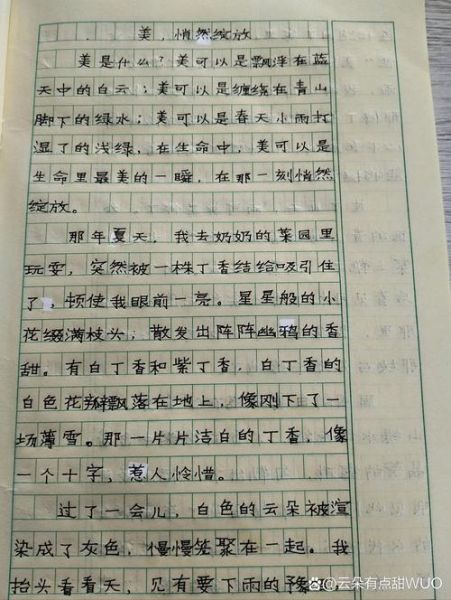 美，悄然绽放
美是什么？美可以是飘浮在蓝
天中的白云；美可以是缠绕在青山
脚下的绿水；美可以是春天小雨打
湿了的浅绿，在生命中，美可以是
生命里最美的一瞬，在那一刻悄然
绽放。
那年夏天，我去奶奶的菜园里
玩耍，突然被一株丁香结给吸引住
了，顿使我眼前一亮。星星般的小
花缀满枝头；散发出阵阵幽鸦的香
甜。有白丁香和紫丁香，白丁香的
白色花瓣飘落在地上，像刚下了一
场薄雪。那一片片洁白的丁香，像
一个十字，惹人怜惜。
过了一会儿，白色的云朵被渲
染成了灰色，慢慢笼聚在一起。我
抬头看看天，见有要下雨的豫
@云朵有点甜WUO